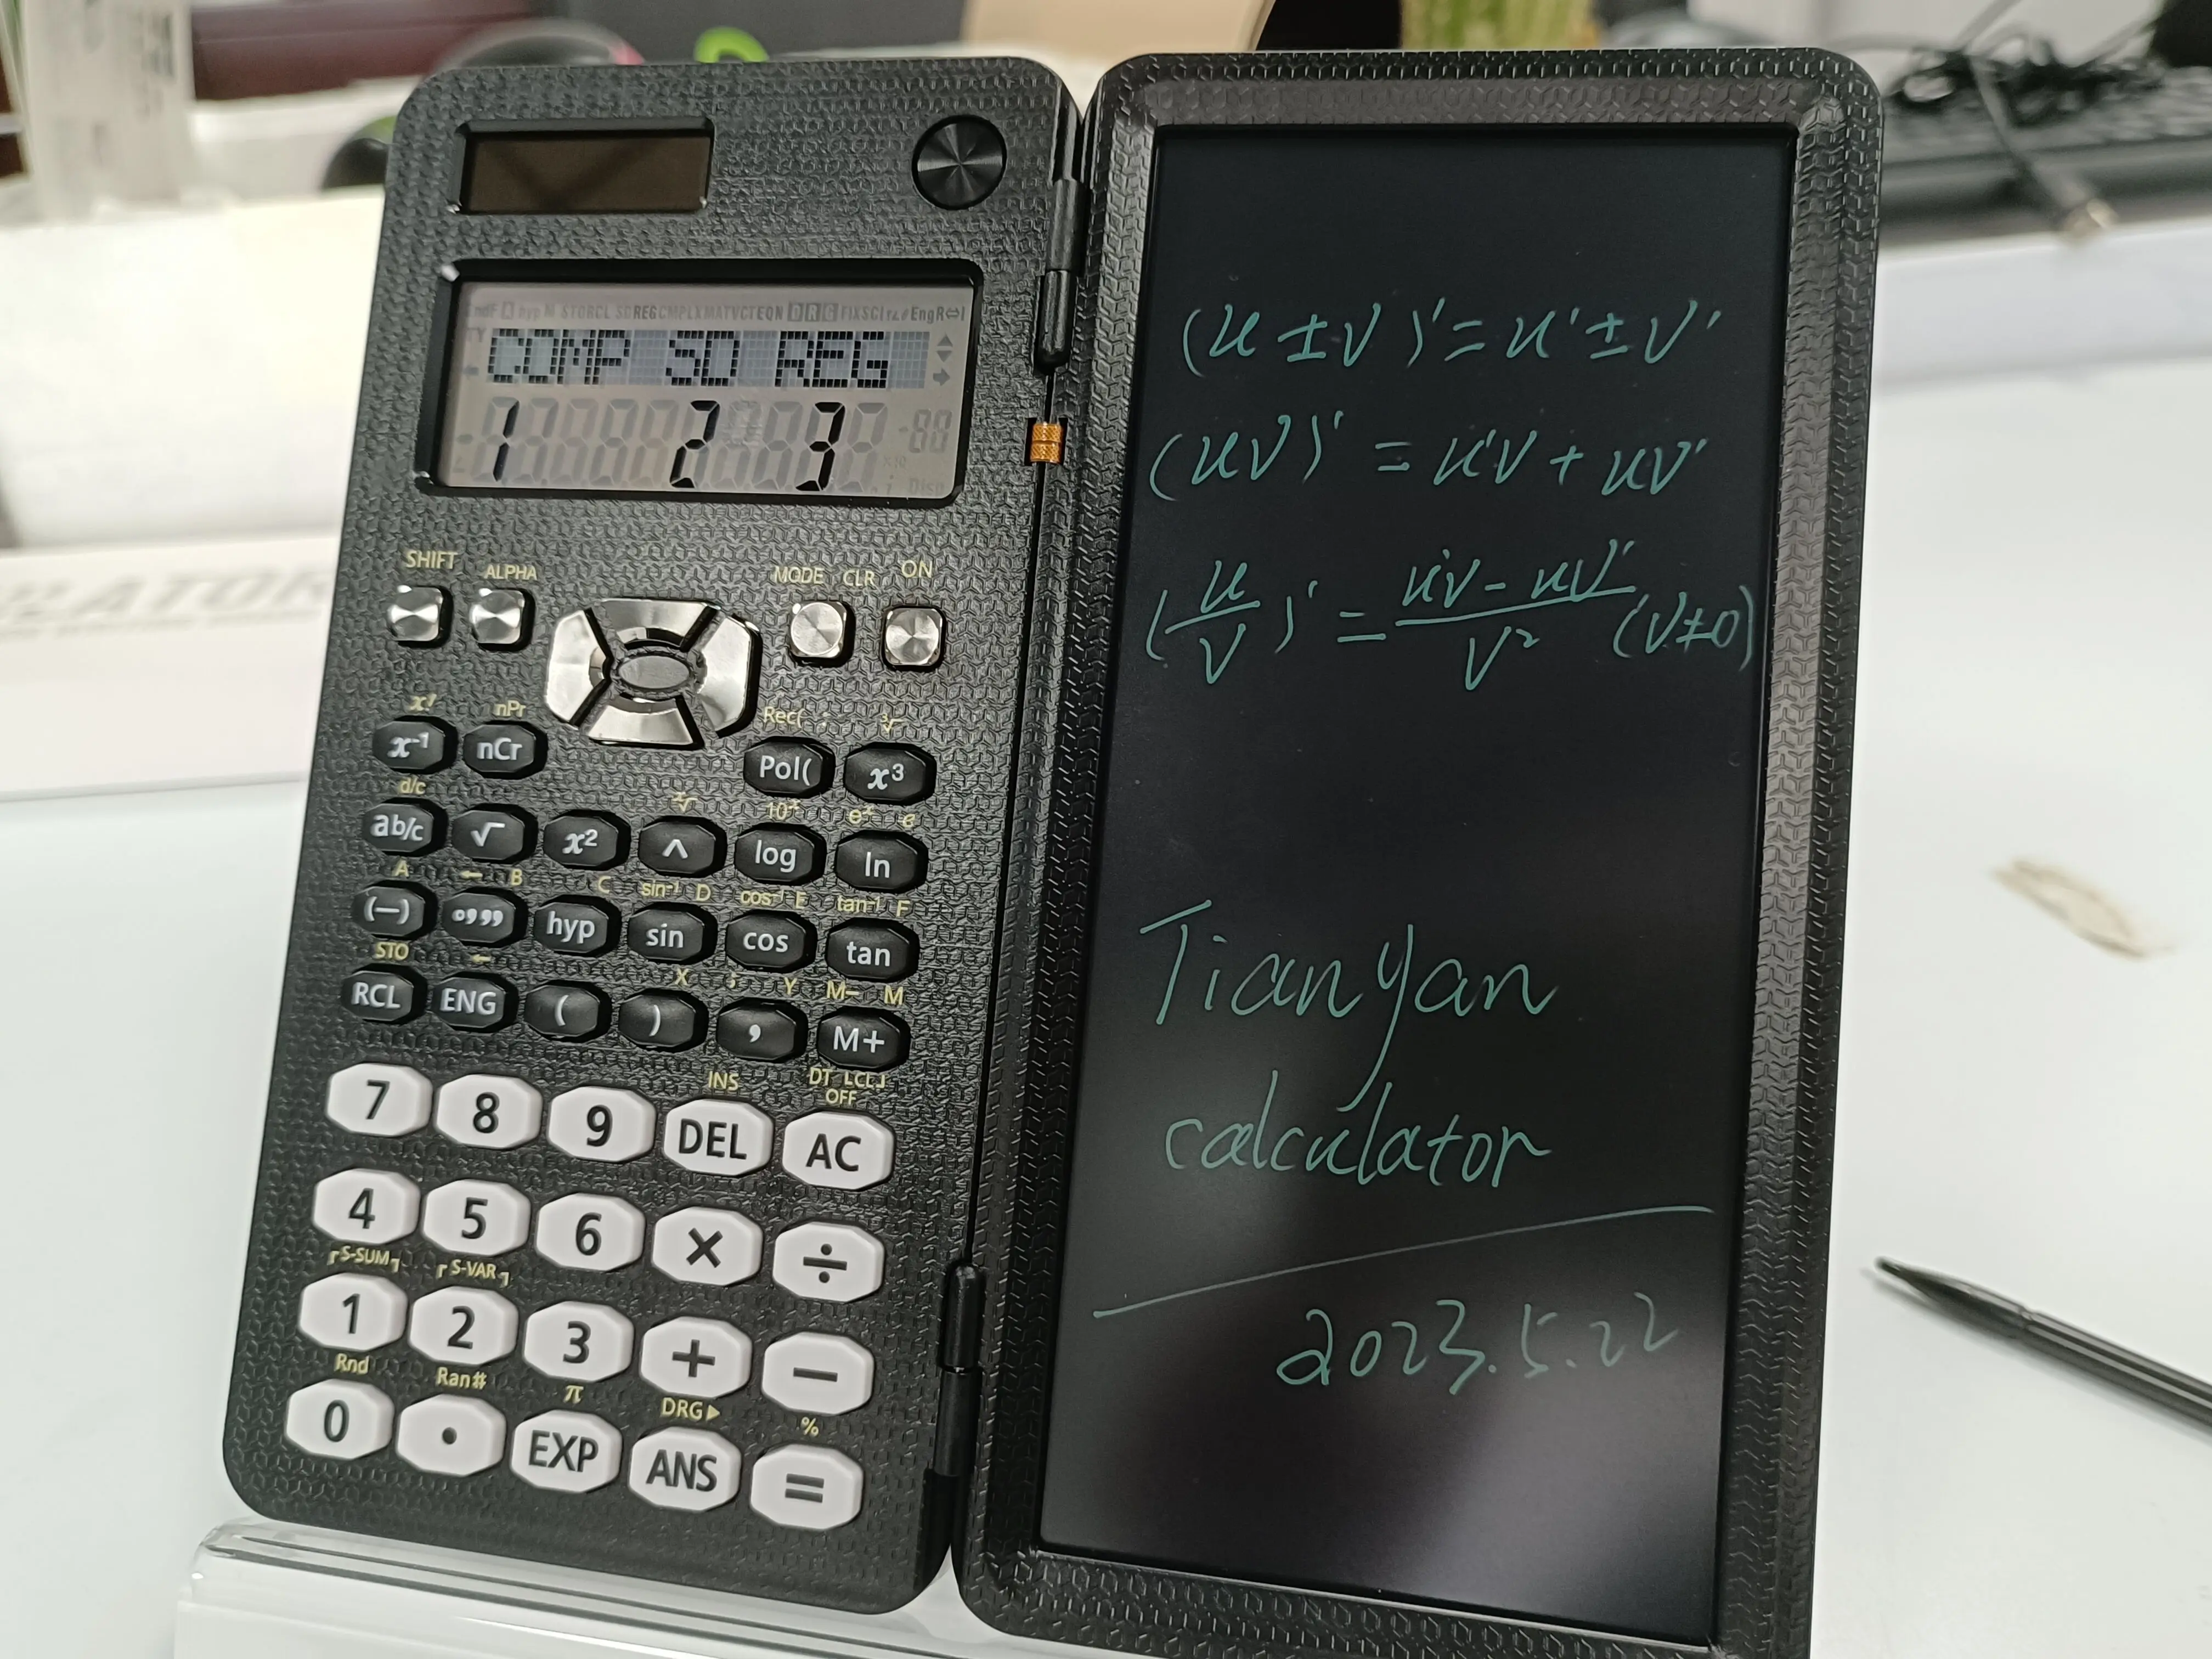 COMP SD REG
1 2 3
SHIFT ALPHA MODE CLR ON
x! nPr Rec( : ³√
x⁻¹ nCr Pol( x³
d/c ˣ√ 10ˣ eˣ e
ab/c √ x² ^ log ln
A ← B C sin⁻¹ D cos⁻¹ E tan⁻¹ F
(—) °,,, hyp sin cos tan
STO ← X ; Y M− M
RCL ENG ( ) , M+
INS DT CL OFF
7 8 9 DEL AC
4 5 6 × ÷
S-SUM S-VAR
1 2 3 + −
Rnd Ran# π DRG▶ %
0 • EXP ANS =
(u ± v)' = u' ± v'
(uv)' = u'v + uv'
(u/v)' = u'v - uv'/v² (v≠0)
Tianyan
calculator
2023.5.22